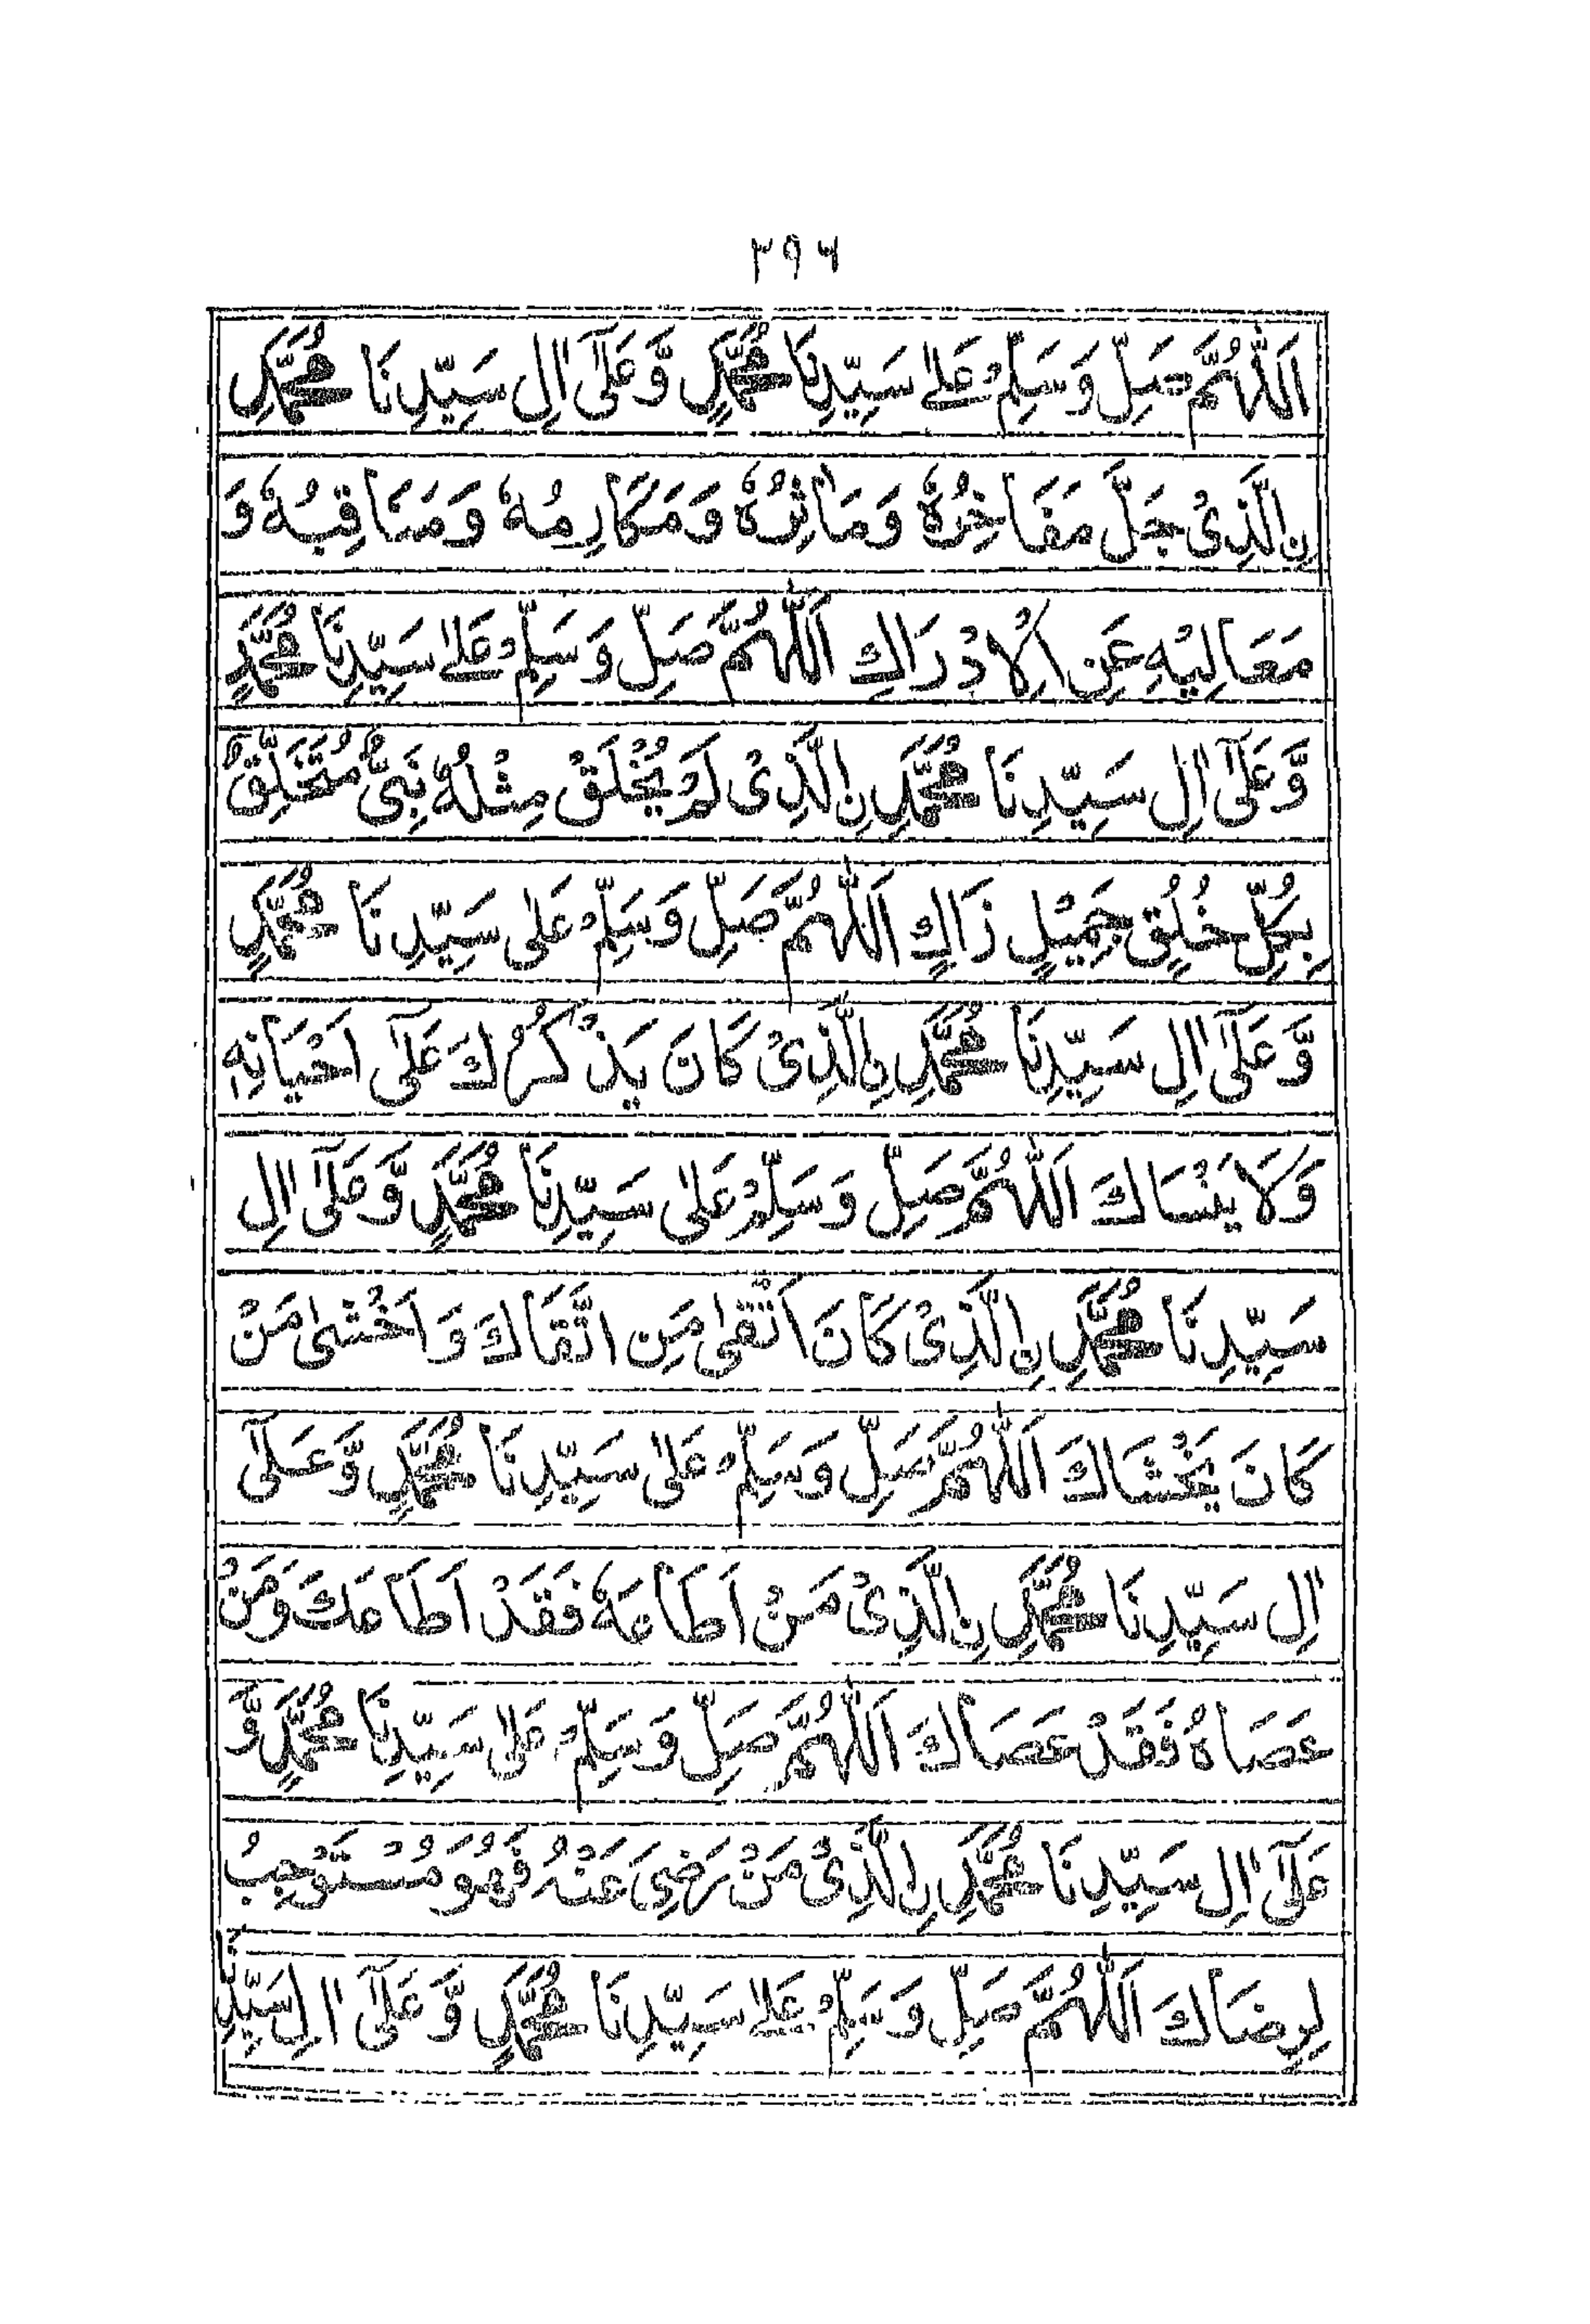 ۲۹۶
اَللّٰهُمَّ صَلِّ وَسَلِّمْ عَلٰى سَيِّدِنَا مُحَمَّدٍ وَّعَلٰٓى اٰلِ سَيِّدِنَا مُحَمَّدِ
نِ الَّذِىْ جَلَّ مَفَاخِرُهٗ وَمَاٰثِرُهٗ وَمَكَارِمُهٗ وَمَنَاقِبُهٗ وَ
مَعَالِيْهِ عَنِ الْاِدْرَاكِ اَللّٰهُمَّ صَلِّ وَسَلِّمْ عَلٰى سَيِّدِنَا مُحَمَّدٍ
وَّعَلٰٓى اٰلِ سَيِّدِنَا مُحَمَّدِ نِ الَّذِىْ لَمْ يُخْلَقْ مِثْلُهٗ نَبِىٌّ مُتَخَلِّقٌ
بِكُلِّ خُلُقٍ جَمِيْلٍ زَاكٍ اَللّٰهُمَّ صَلِّ وَسَلِّمْ عَلٰى سَيِّدِنَا مُحَمَّدٍ
وَّعَلٰٓى اٰلِ سَيِّدِنَا مُحَمَّدِ نِ الَّذِىْ كَانَ يَذْكُرُكَ عَلٰٓى اَحْيَانِهٖ
وَلَا يَنْسَاكَ اَللّٰهُمَّ صَلِّ وَسَلِّمْ عَلٰى سَيِّدِنَا مُحَمَّدٍ وَّعَلٰٓى اٰلِ
سَيِّدِنَا مُحَمَّدِ نِ الَّذِىْ كَانَ اَتْقٰى مَنِ اتَّقَاكَ وَاَخْشٰى مَنْ
كَانَ يَخْشَاكَ اَللّٰهُمَّ صَلِّ وَسَلِّمْ عَلٰى سَيِّدِنَا مُحَمَّدٍ وَّعَلٰٓى
اٰلِ سَيِّدِنَا مُحَمَّدِ نِ الَّذِىْ مَنْ اَطَاعَهٗ فَقَدْ اَطَاعَكَ وَمَنْ
عَصَاهُ فَقَدْ عَصَاكَ اَللّٰهُمَّ صَلِّ وَسَلِّمْ عَلٰى سَيِّدِنَا مُحَمَّدٍ وَّ
عَلٰٓى اٰلِ سَيِّدِنَا مُحَمَّدِ نِ الَّذِىْ مَنْ رَضِىَ عَنْهُ فَهُوَ مُسْتَوْجِبُ
لِرِضَاكَ اَللّٰهُمَّ صَلِّ وَسَلِّمْ عَلٰى سَيِّدِنَا مُحَمَّدٍ وَّعَلٰٓى اٰلِ سَيِّدِ